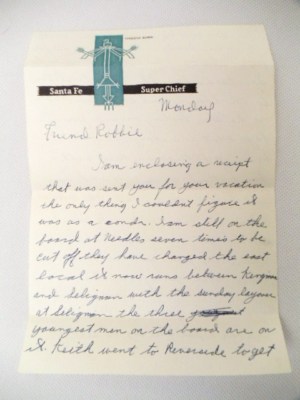 Santa Fe Super Chief
Monday
Friend Robbie
I am enclosing a receipt
that was sent you for your vacation
the only thing I couldnt figure it
was as a condr. I am still on the
board at Needles seven times to be
cut off, they have changed the east
local it now runs between Kingman
and Seligman with the sunday layover
at Seligman the three
youngest men on the board are on
it. Keith went to Riverside to get